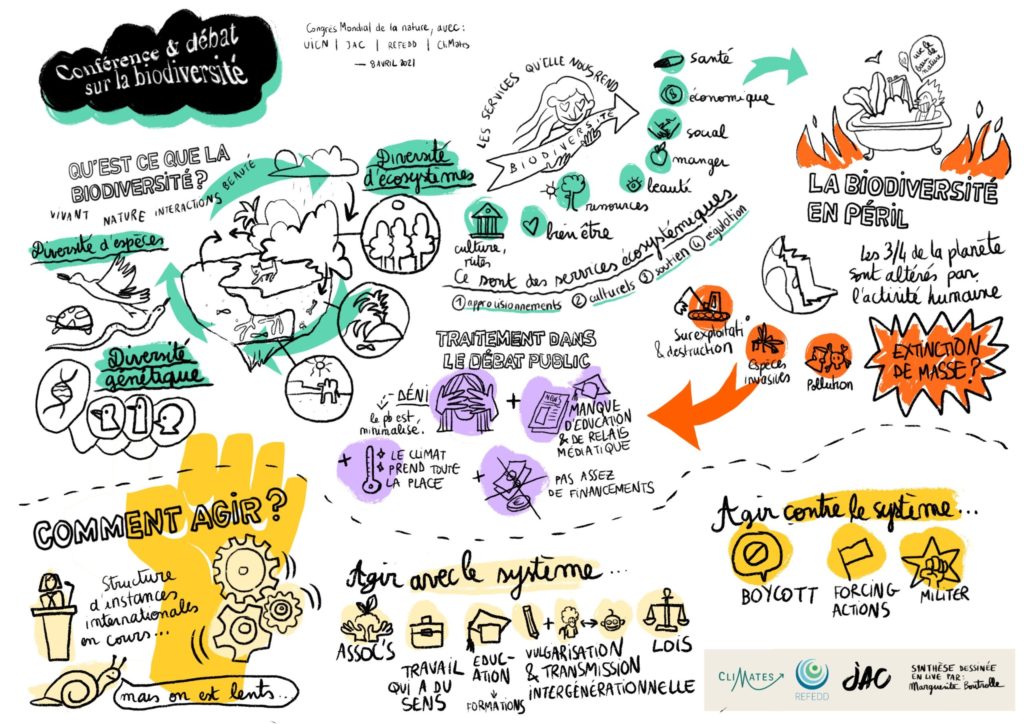 Conférence & débat
sur la biodiversité
Congrès Mondial de la nature, avec :
UICN | JAC | REFEDD | CliMates
— 8 AVRIL 2021
QU'EST CE QUE LA
BIODIVERSITÉ ?
VIVANT NATURE INTERACTIONS BEAUTÉ
Diversité d'espèces
Diversité
d'écosystèmes
Diversité
génétique
LES SERVICES QU'ELLE NOUS REND
BIODIVERSITÉ
santé
économique
social
manger
beauté
ressources
bien être
culture,
Ce sont des services écosystémiques
1 approvisionnements 2 culturels 3 soutien 4 régulation
LA BIODIVERSITÉ
EN PÉRIL
Les 3/4 de la planète
sont altérés par
l'activité humaine
Surexploitati°
& destruction
Espèces
invasives
Pollution
EXTINCTION
DE MASSE ?
TRAITEMENT DANS
LE DÉBAT PUBLIC
DÉNI
le pb est
minimalisé.
+
NEWS
MANQUE
D'ÉDUCATION
& DE RELAIS
MÉDIATIQUE
+
LE CLIMAT
PREND TOUTE
LA PLACE
+
PAS ASSEZ
DE FINANCEMENTS
COMMENT AGIR ?
Structure
d'instances
internationales
en cours...
mais on est lents...
Agir avec le système...
ASSOC'S
TRAVAIL
QUI A DU
SENS
ÉDUC-
ATION
↓
FORMATIONS
+
VULGARISATION
& TRANSMISSION
INTERGÉNÉRATIONNELLE
LOIS
Agir contre le système...
BOYCOTT
FORCING
ACTIONS
MILITER
CLIMATES
REFEDD
JAC
SYNTHÈSE DESSINÉE
EN LIVE PAR :
Marguerite Boutrolle